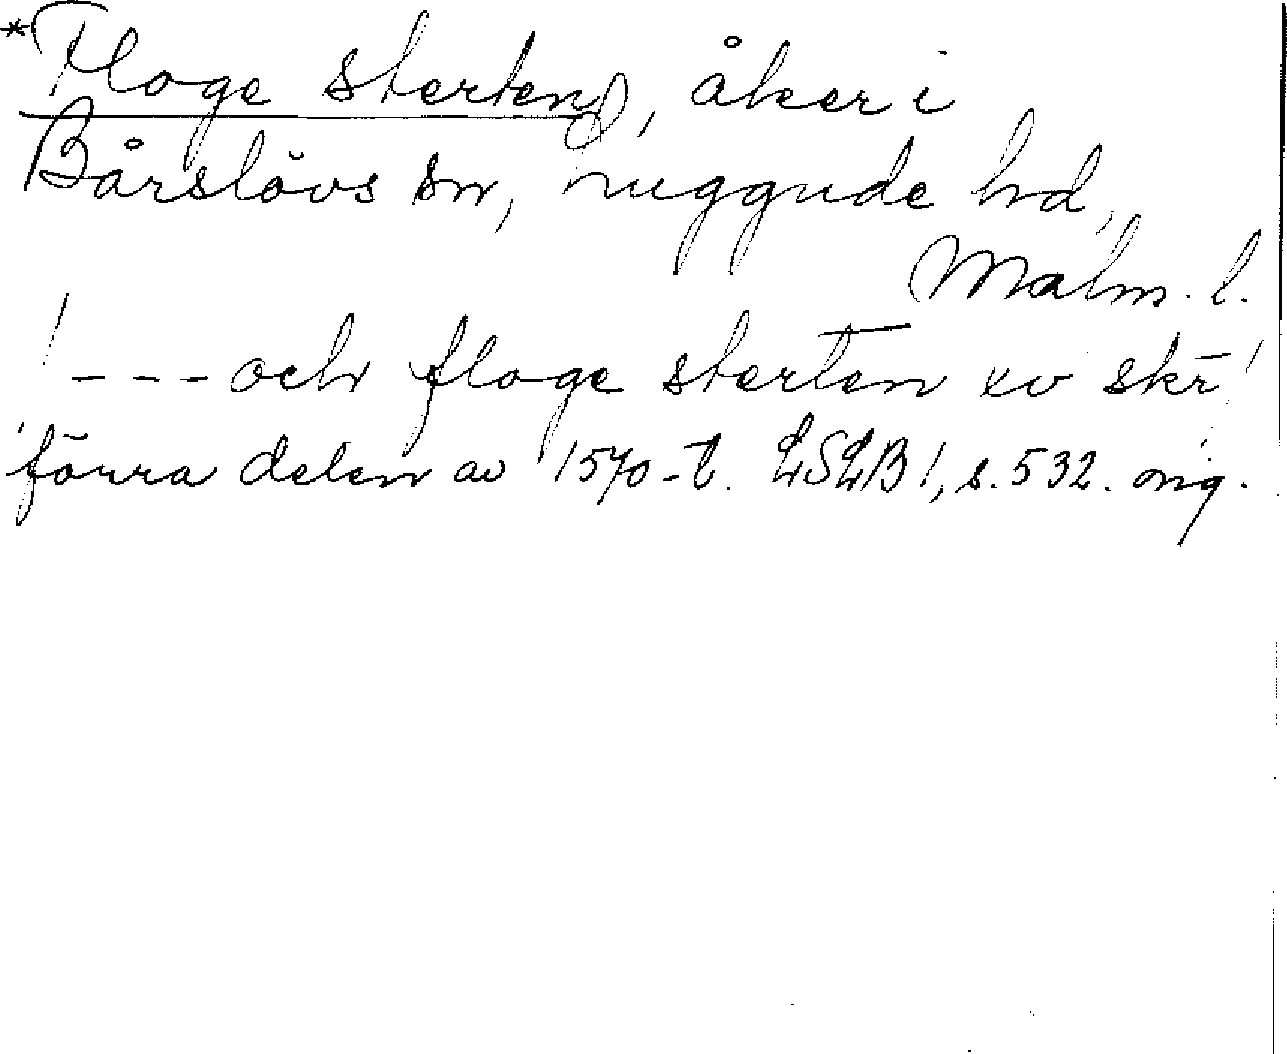 *Floge sterten, åker i
Bårslövs sn, Luggude hd,
Malm. l.
! --- och floge sterten xv skr̄ !
förra delen av 1570-t. LSLB 1, s. 532. orig.